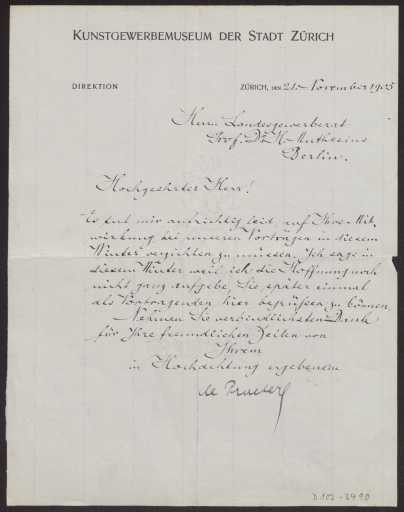 KUNSTGEWERBEMUSEUM DER STADT ZÜRICH
DIREKTION
ZÜRICH, DEN 21. November 1905
Herrn Landesgewerberat
Prof. Dr. H. Muthesius
Berlin.
Hochgeehrter Herr!
Es tut mir aufrichtig leid, auf Ihre Mit-
wirkung bei unseren Vorträgen in diesem
Winter verzichten zu müssen. Ich sage in
diesem Winter weil ich die Hoffnung noch
nicht ganz aufgebe, Sie später einmal
als Vortragenden hier begrüssen zu können.
Nehmen Sie verbindlichsten Dank
für Ihre freundlichen Zeilen von
Ihrem
in Hochachtung ergebenem
de Praetere
D 102-3490